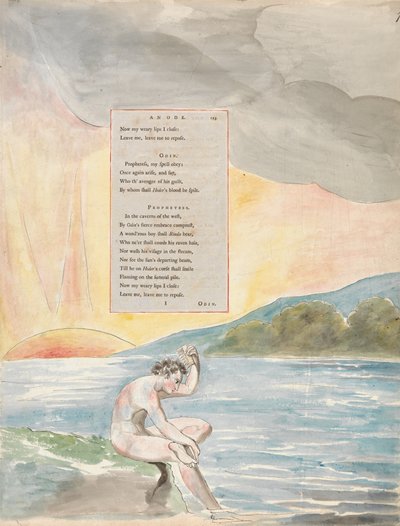 AN ODE.
Now my weary lips I close:
Leave me, leave me to repose.
ODIN.
Prophetess, my spell obey:
Once again arise, and say,
Who th' avenger of his guilt,
By whom shall Hoder's blood be spilt.
PROPHETESS.
In the caverns of the west,
By Odin's fierce embrace comprest,
A wond'rous boy shall Rinda bear,
Who ne'er shall comb his raven hair,
Nor wash his visage in the stream,
Nor see the sun's departing beam,
Till he on Hoder's corse shall smile
Flaming on the funeral pile.
Now my weary lips I close:
Leave me, leave me to repose.
I ODIN.